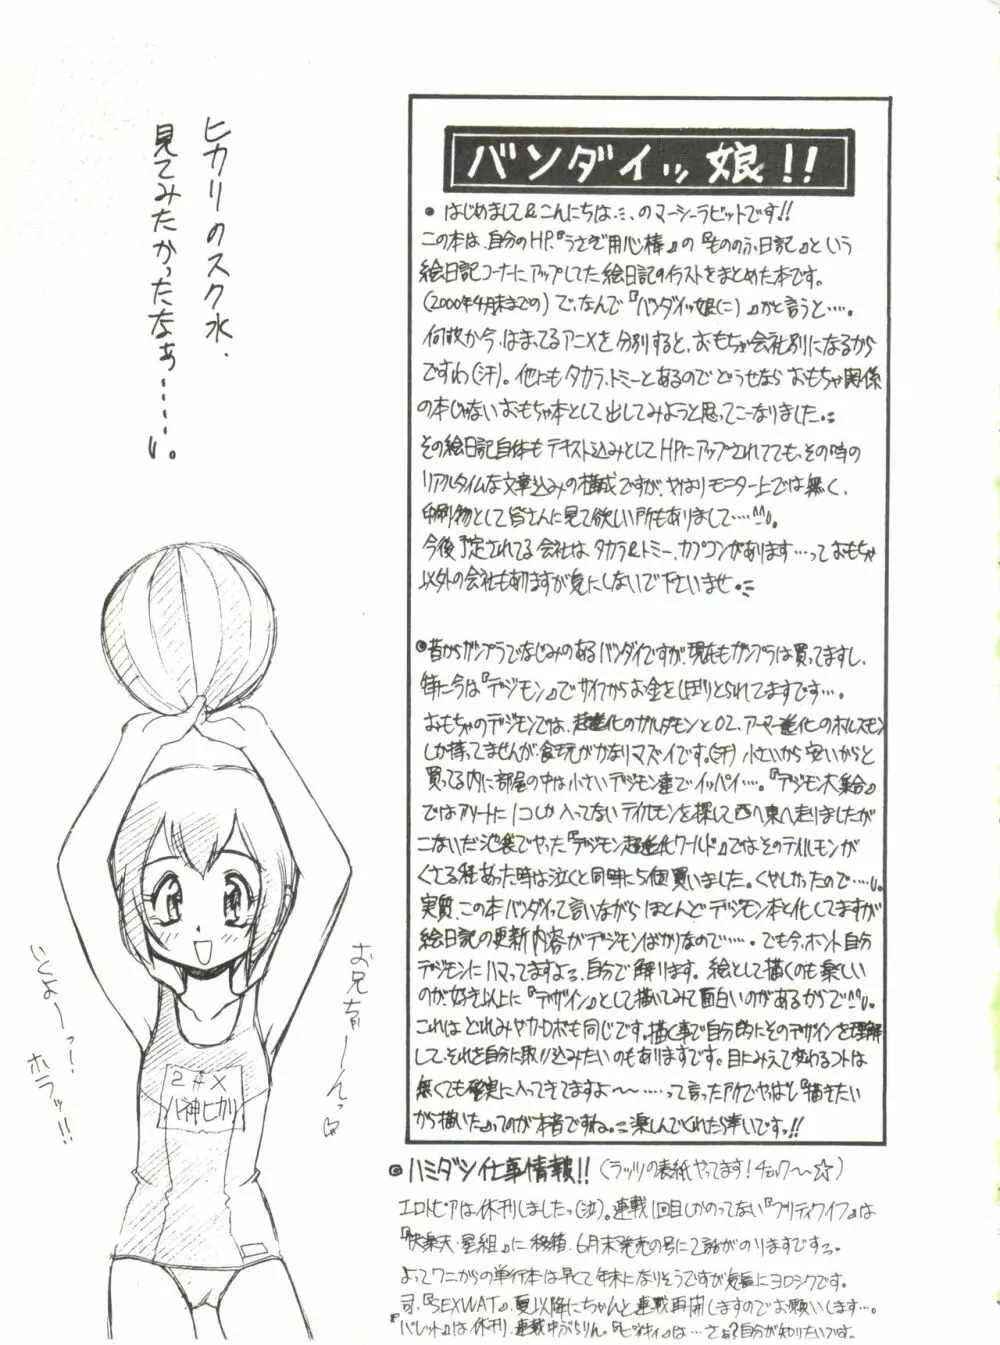 バンダイッ娘!!
● はじめまして&こんにちは…、のマーシーラビットです!!
この本は、自分のHP.『うさぎ用心棒』の『もののふ日記』という
絵日記コーナーにアップしてた絵日記のイラストをまとめた本です。
(2000年4月末までの)で、なんで『バンダイッ娘(こ)』かと言うと….
何故か今、はまってるアニメを分別すると、おもちゃ会社別になるから
ですわ(汗)。他にもタカラ、トミーとあるのでどうせなら おもちゃ関係
の本じゃないおもちゃ本として出してみようと思ってこーなりました。
その絵日記自体もテキスト込みとしてHPにアップされてても、その時の
リアルタイムな文章込みの構成ですが、やはりモニター上では無く、
印刷物として皆さんに見て欲しい所もありまして….^^。
今後予定されてる会社は、タカラ&トミー、カプコンがあります…っておもちゃ
以外の会社もありますが気にしないで下さいませ。
●昔からガンプラでなじみのあるバンダイですが、現在もガンプラは買ってますし、
特に今は『デジモン』でサイフからお金をしぼりとられてますです…。
おもちゃのデジモンでは、超進化のガルダモンと02、アーマー進化のホルスモン
しか持ってませんが、食玩がかなりマズイです。(汗)小さいから安いからと
買ってる内に部屋の中は小さいデジモン達でイッパイ….『デジモン大集合』
ではアソートに1コしか入ってないテイルモンを探して西へ東へ走りましたが
こないだ池袋でやった『デジモン超進化ワールド』ではそのテイルモンが
くさる程あった時は泣くと同時に5個買いました。くやしかったので….。
実質、この本バンダイって言いながら ほとんどデジモン本と化してますが
絵日記の更新内容がデジモンばかりなので……. でも今、ホント自分
デジモンにハマってますよね、自分で解ります。絵として描くのも楽しい
のが、好き以上に『デザイン』として描いてみて面白いのがあるからで^^。
これは どれみやカーロボも同じです。描く事で自分的にそのデザインを理解
して、それを自分に取り込みたいのもありますです。目にみえて変わるコトは
無くても確実に入ってきてますよ〜〜……って言った所でやっぱし『描きたい
から描いた』ってのが本音ですね。楽しんでくれたら幸いですっ!!
◎ハミダシ仕事情報!!(ラッツの表紙やってます!チェック〜☆)
エロトピアは休刊しましたっ(泣)。連載1回目しかのってない『プリティワイフ』は
『快楽天・星組』に移籍、6月末発売の号にて2話がのりますです。
よってワニからの単行本は早くて年末になりそうですが気長にヨロシクです。
『SEXWAT』、夏以降にちゃんと連載再開しますのでお願いします…。
『パレット』は休刊、連載中ぶらりん。は…さぁ?自分が知りたいです。
ヒカリのスク水、
見てみたかったなぁ……。
お兄ちゃーーんっ♡
いくよーっ!
ホラッ!!
2年X
八神ヒカリ